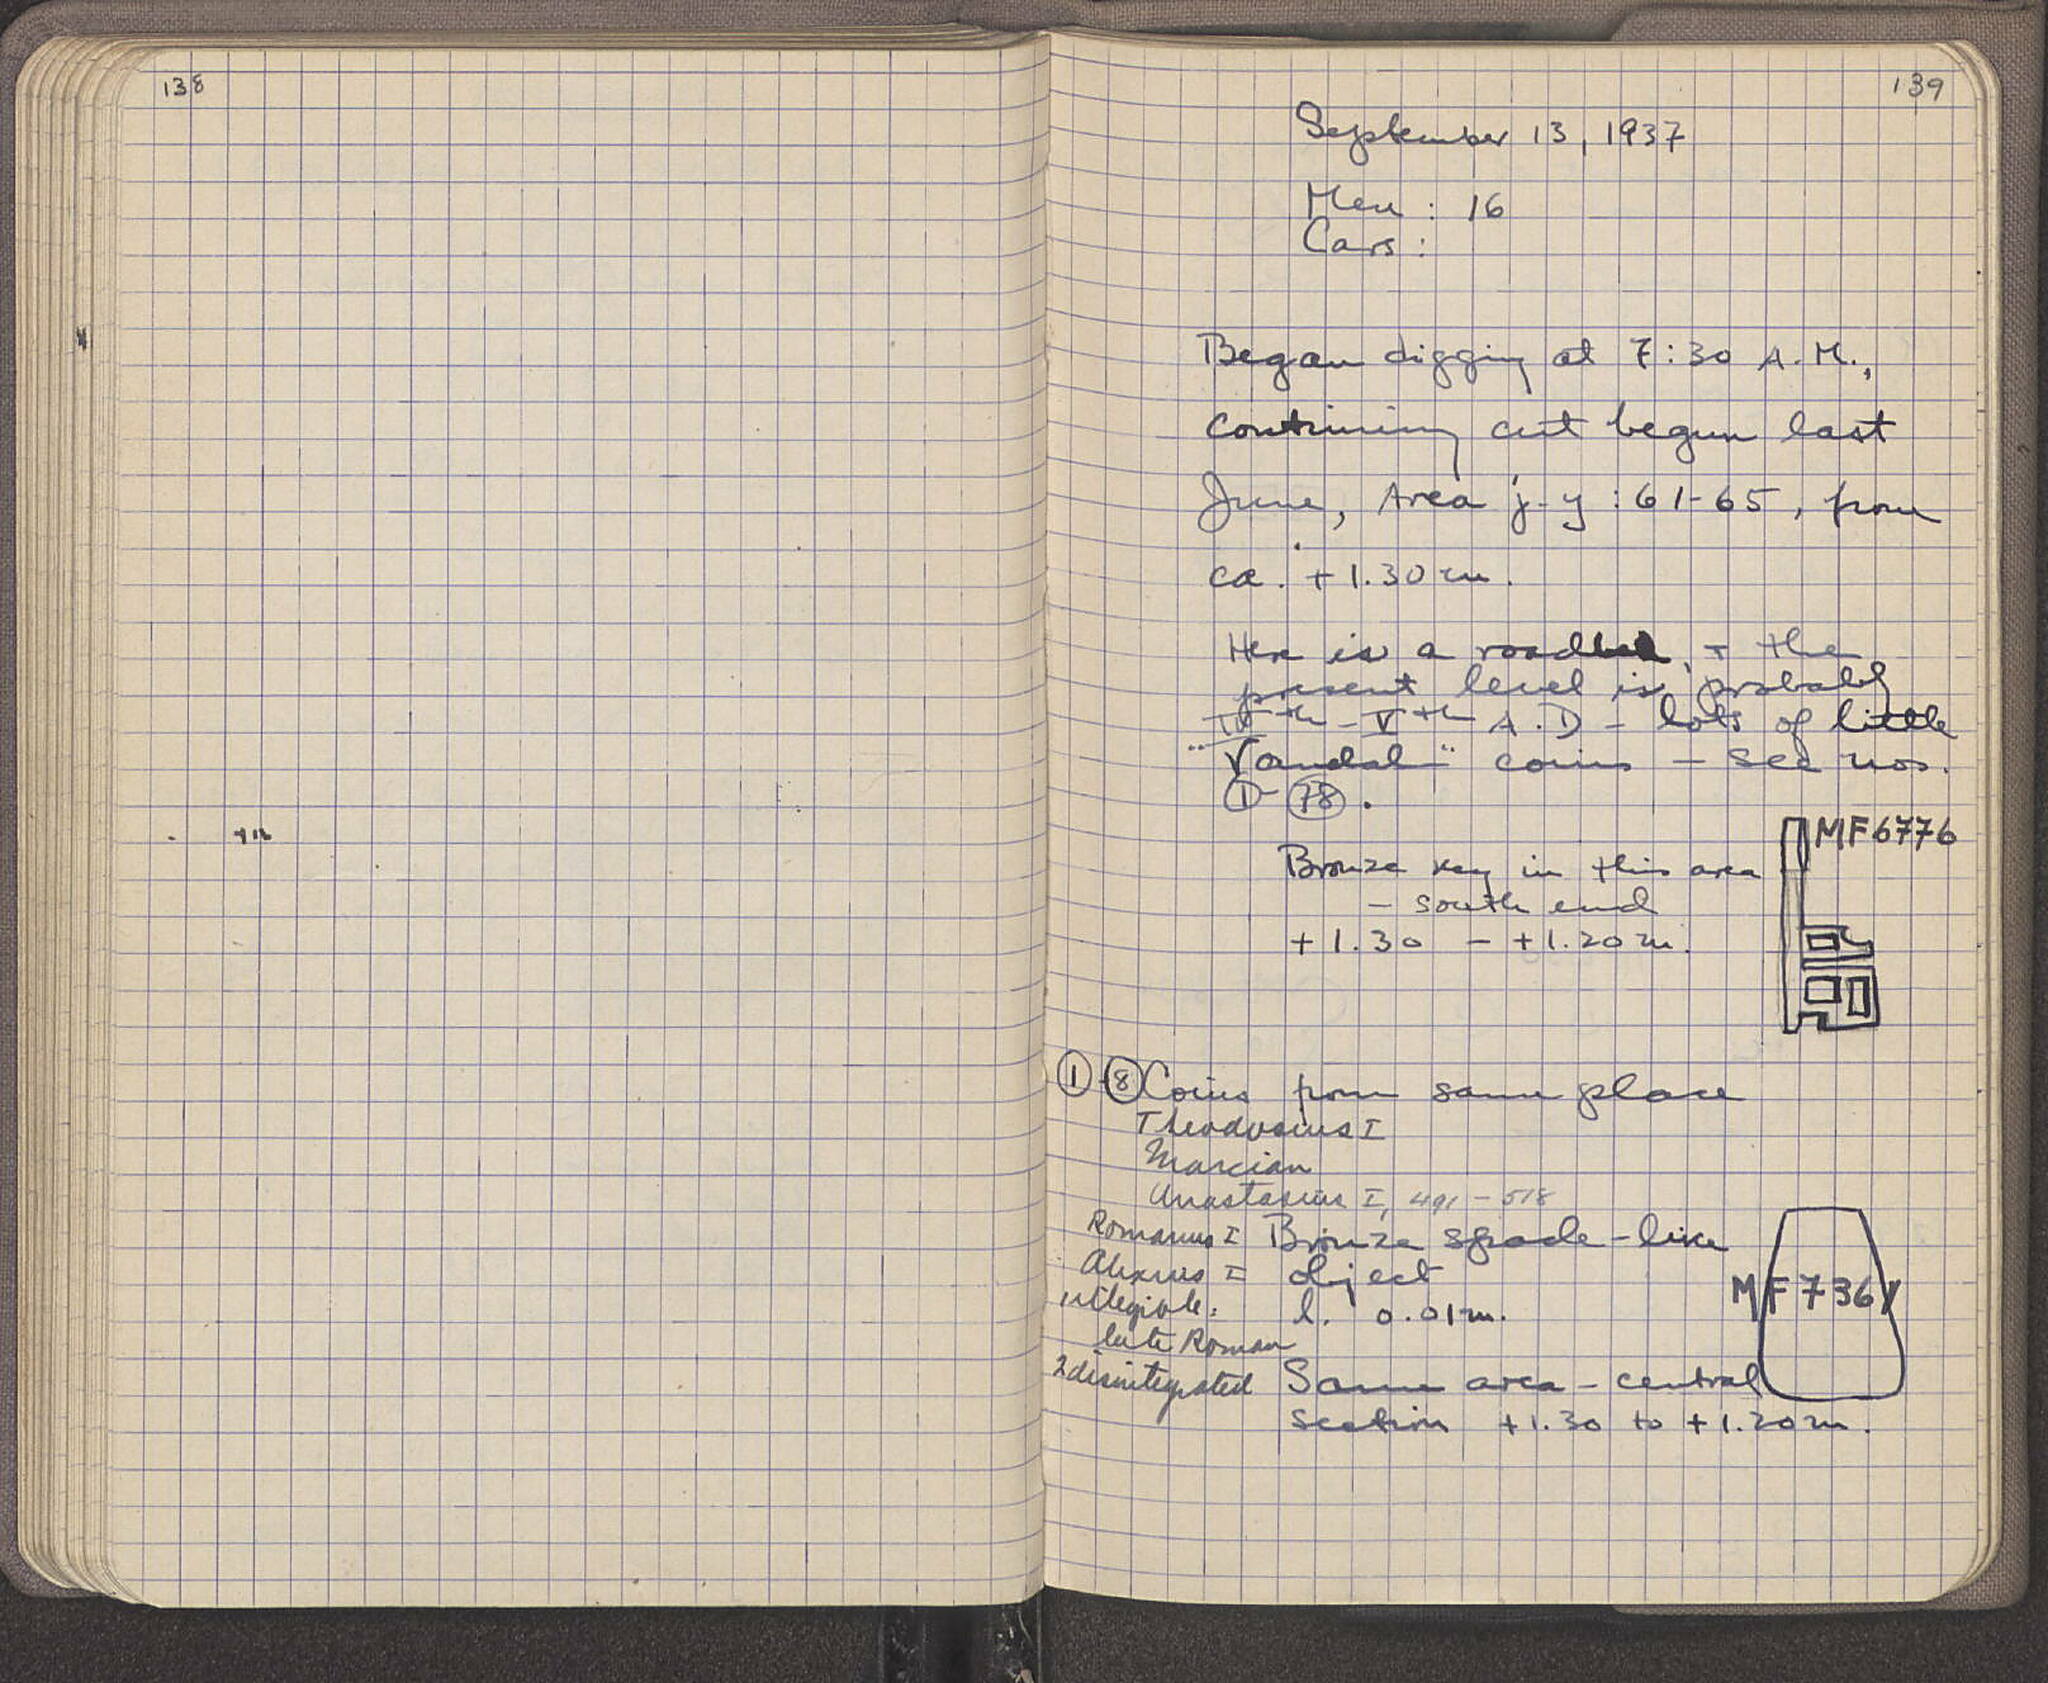 138
139
September 13, 1937
Men : 16
Cars :
Began digging at 7:30 A.M.,
continuing cut begun last
June, Area j-y : 61-65, from
ca. +1.30 m.
Here is a roadbed, + the
present level is probably
IVth-Vth A.D - lots of little
"Vandal" coins - see nos.
1- 78.
MF6776
Bronze key in this area
- south end
+1.30 - +1.20 m.
1-8 Coins from same place
Theodosius I
Marcian
Anastasius I, 491-518
Romanus I
Bronze spade-like
Alexius I
object
illegible:
l. 0.01 m.
MF7361
late Roman
2 disintegrated
Same area - central
section +1.30 to +1.20 m.